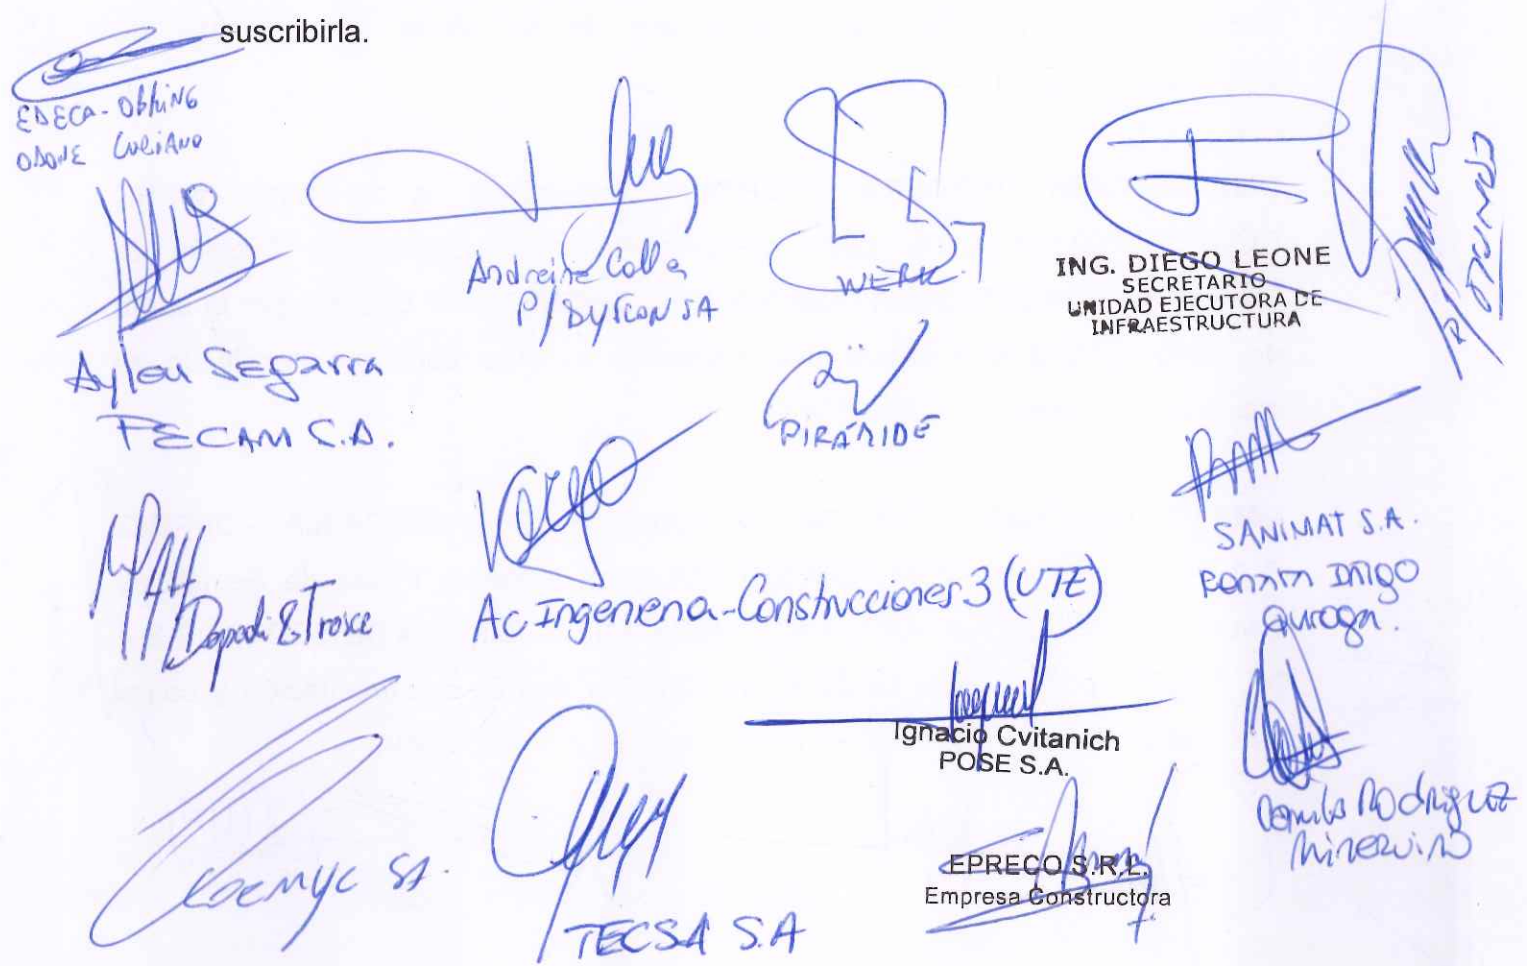 suscribirla.
EDECA - 
ODONE LUCIANO
Andreina Colla
P/ DYSCON SA
WERK
ING. DIEGO LEONE
SECRETARIO
UNIDAD EJECUTORA DE
INFRAESTRUCTURA
Aylen Segarra
PECAM S.A.
PIRÁMIDE
SANIMAT S.A.
Quiroga.
Dapadi & Troxce
AC Ingenieria - Construcciones 3 (UTE)
Ignacio Cvitanich
POSE S.A.
Camila Rodriguez
Minervino
COEMYC SA.
TECSA S.A
EPRECO S.R.L.
Empresa Constructora